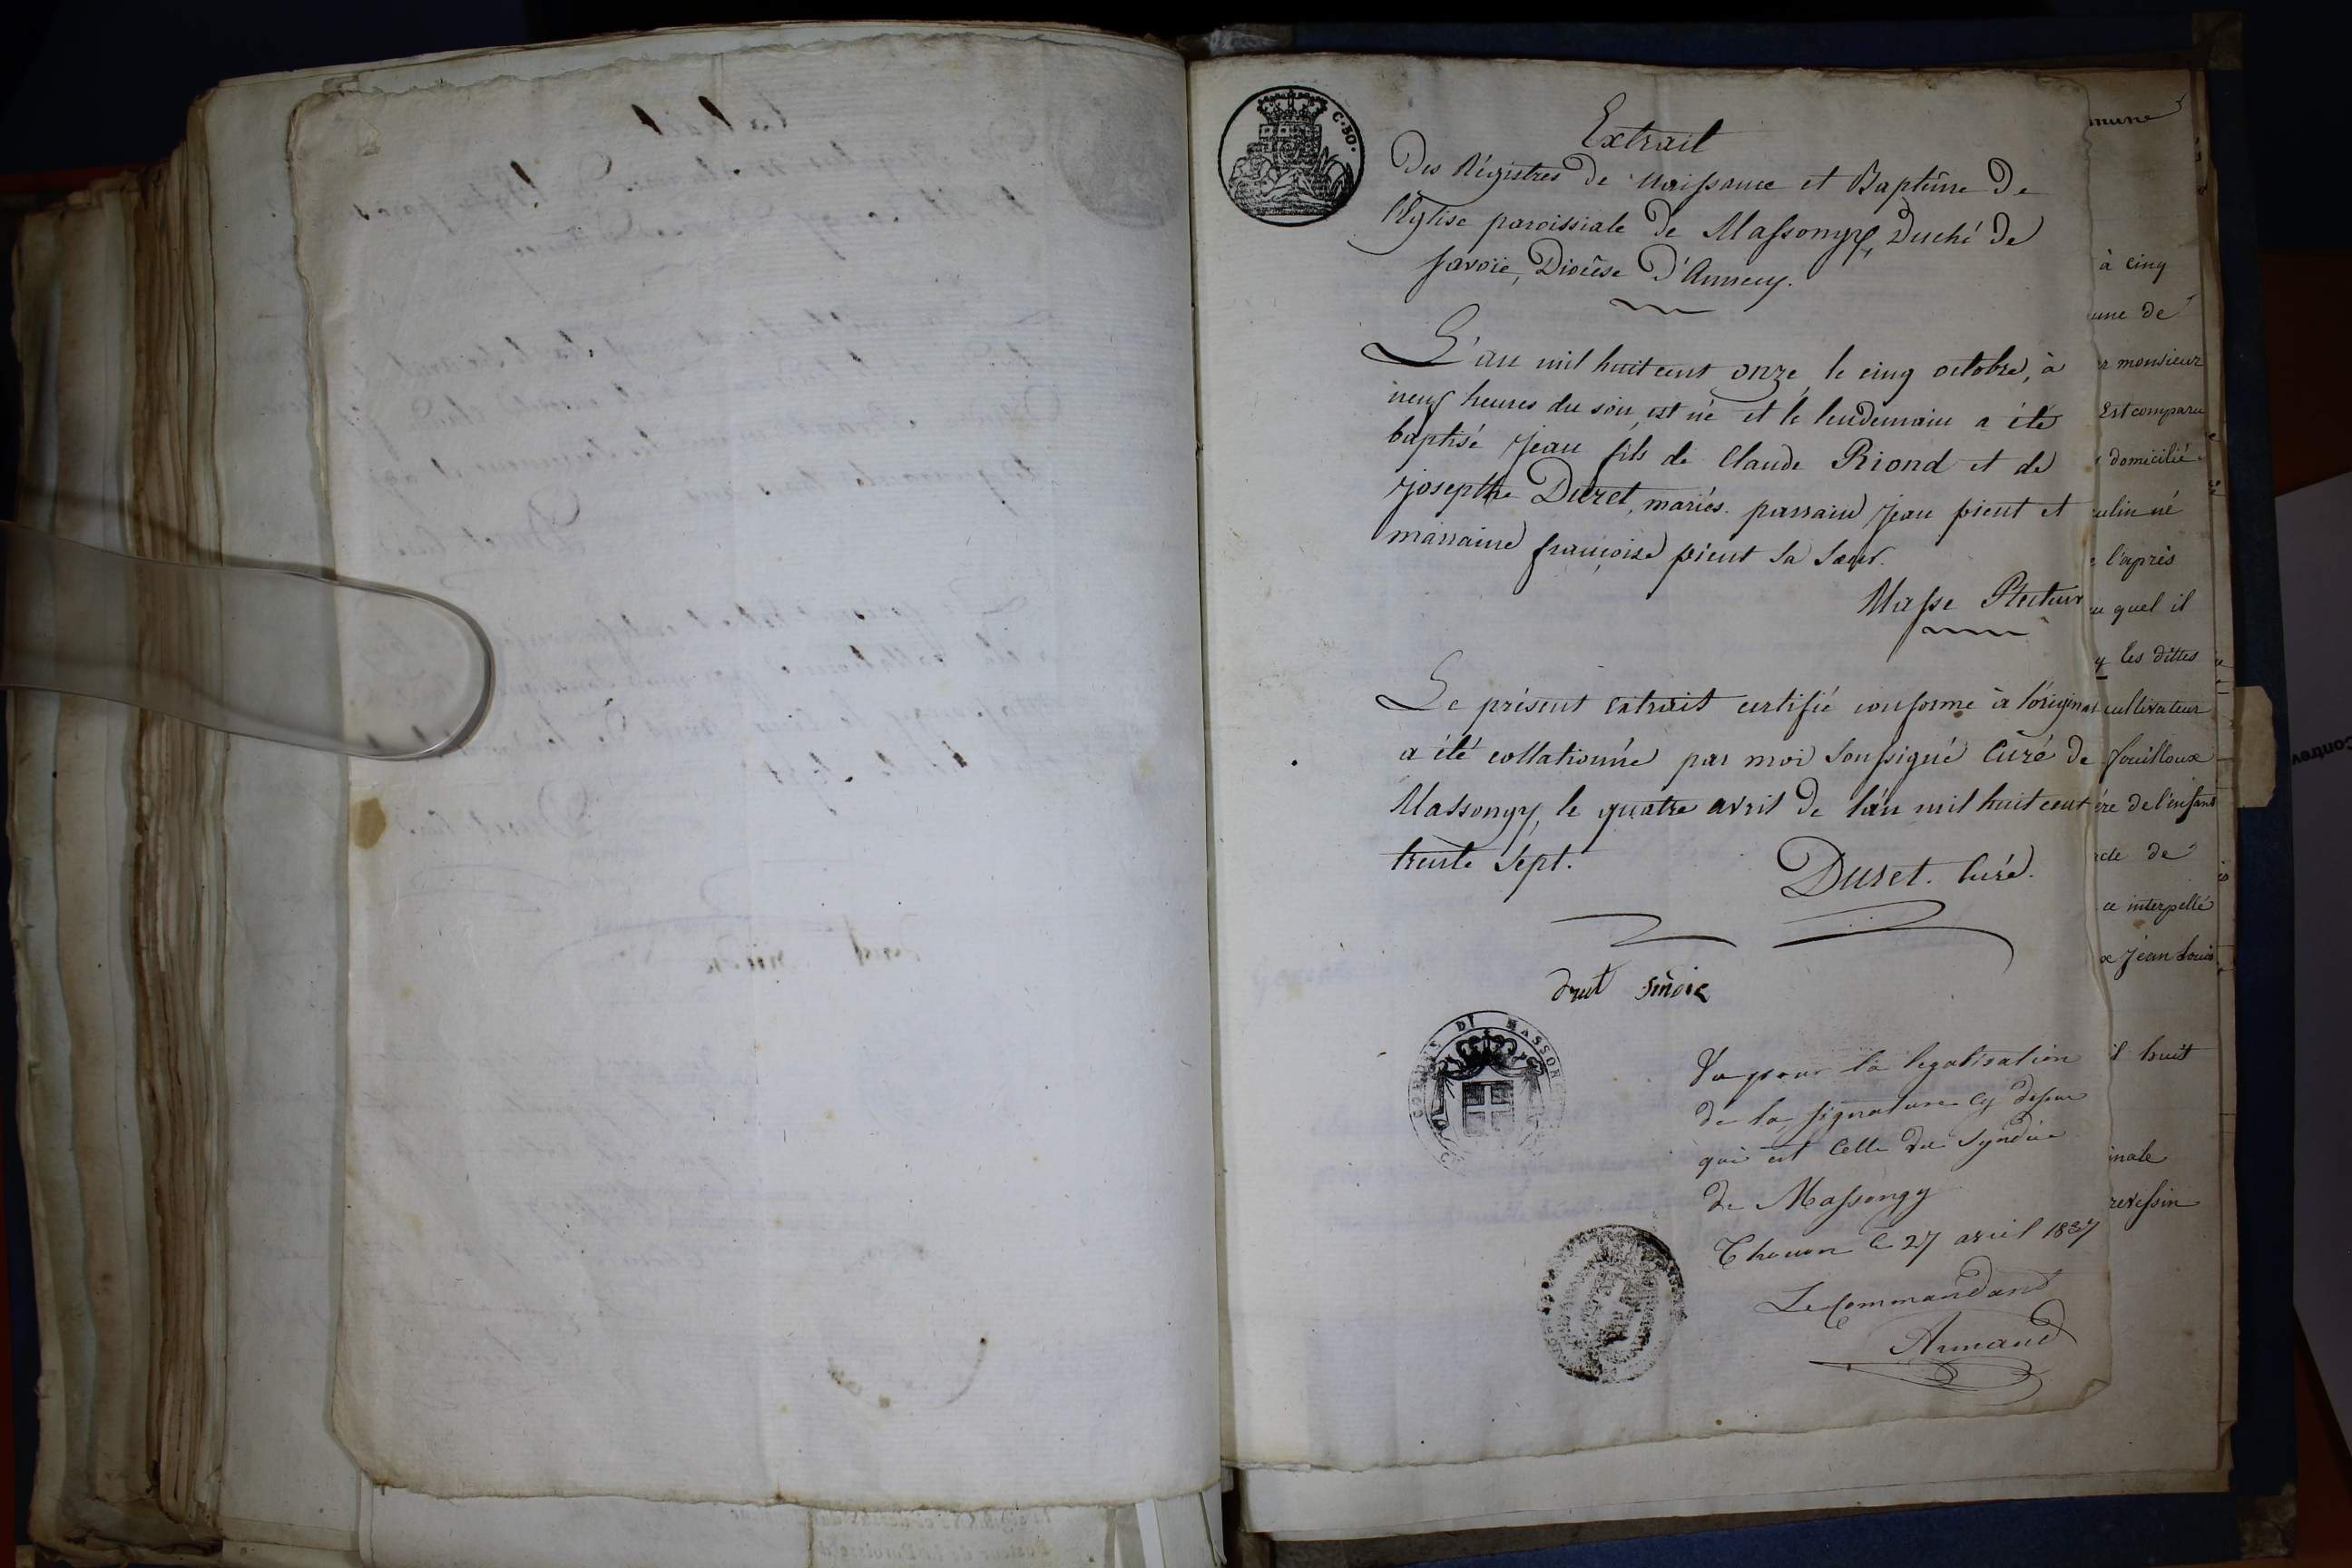 C. 50.
Extrait
Des Régistres De Naissance et Baptême De
l'Eglise paroissiale De Massongy, Duché De
Savoie, Diocèse D'Annecy.
L'an mil huit cent onze, le cinq octobre, à
neuf heures du soir, est né et le lendemain a été
baptisé Jean fils de Claude Riond et de
Josephte Duret, mariés. parrain Jean pient et
marraine françoise pient sa sœur.
Masse Recteur
Le présent extrait certifié conforme à l'original
a été collationné par moi soussigné Curé De
Massongy, le quatre avril De l'an mil huit cent
trente sept.
Duret. Curé.
Drut sindic
DI MASSON
Vu pour la legalisation
de la signature cy dessus
qui est Celle du Syndic
de Massongy
Thonon le 27 avril 1837
Le Commandant
Armand
mune
à cinq
une de
r monsieur
Est comparu
domicilié
culin né
l'après
u quel il
y les dittes
cultivateur
fouilloux
ére de l'enfant
acte de
ce interpellé
x Jean Louis
il huit
inale
revessin